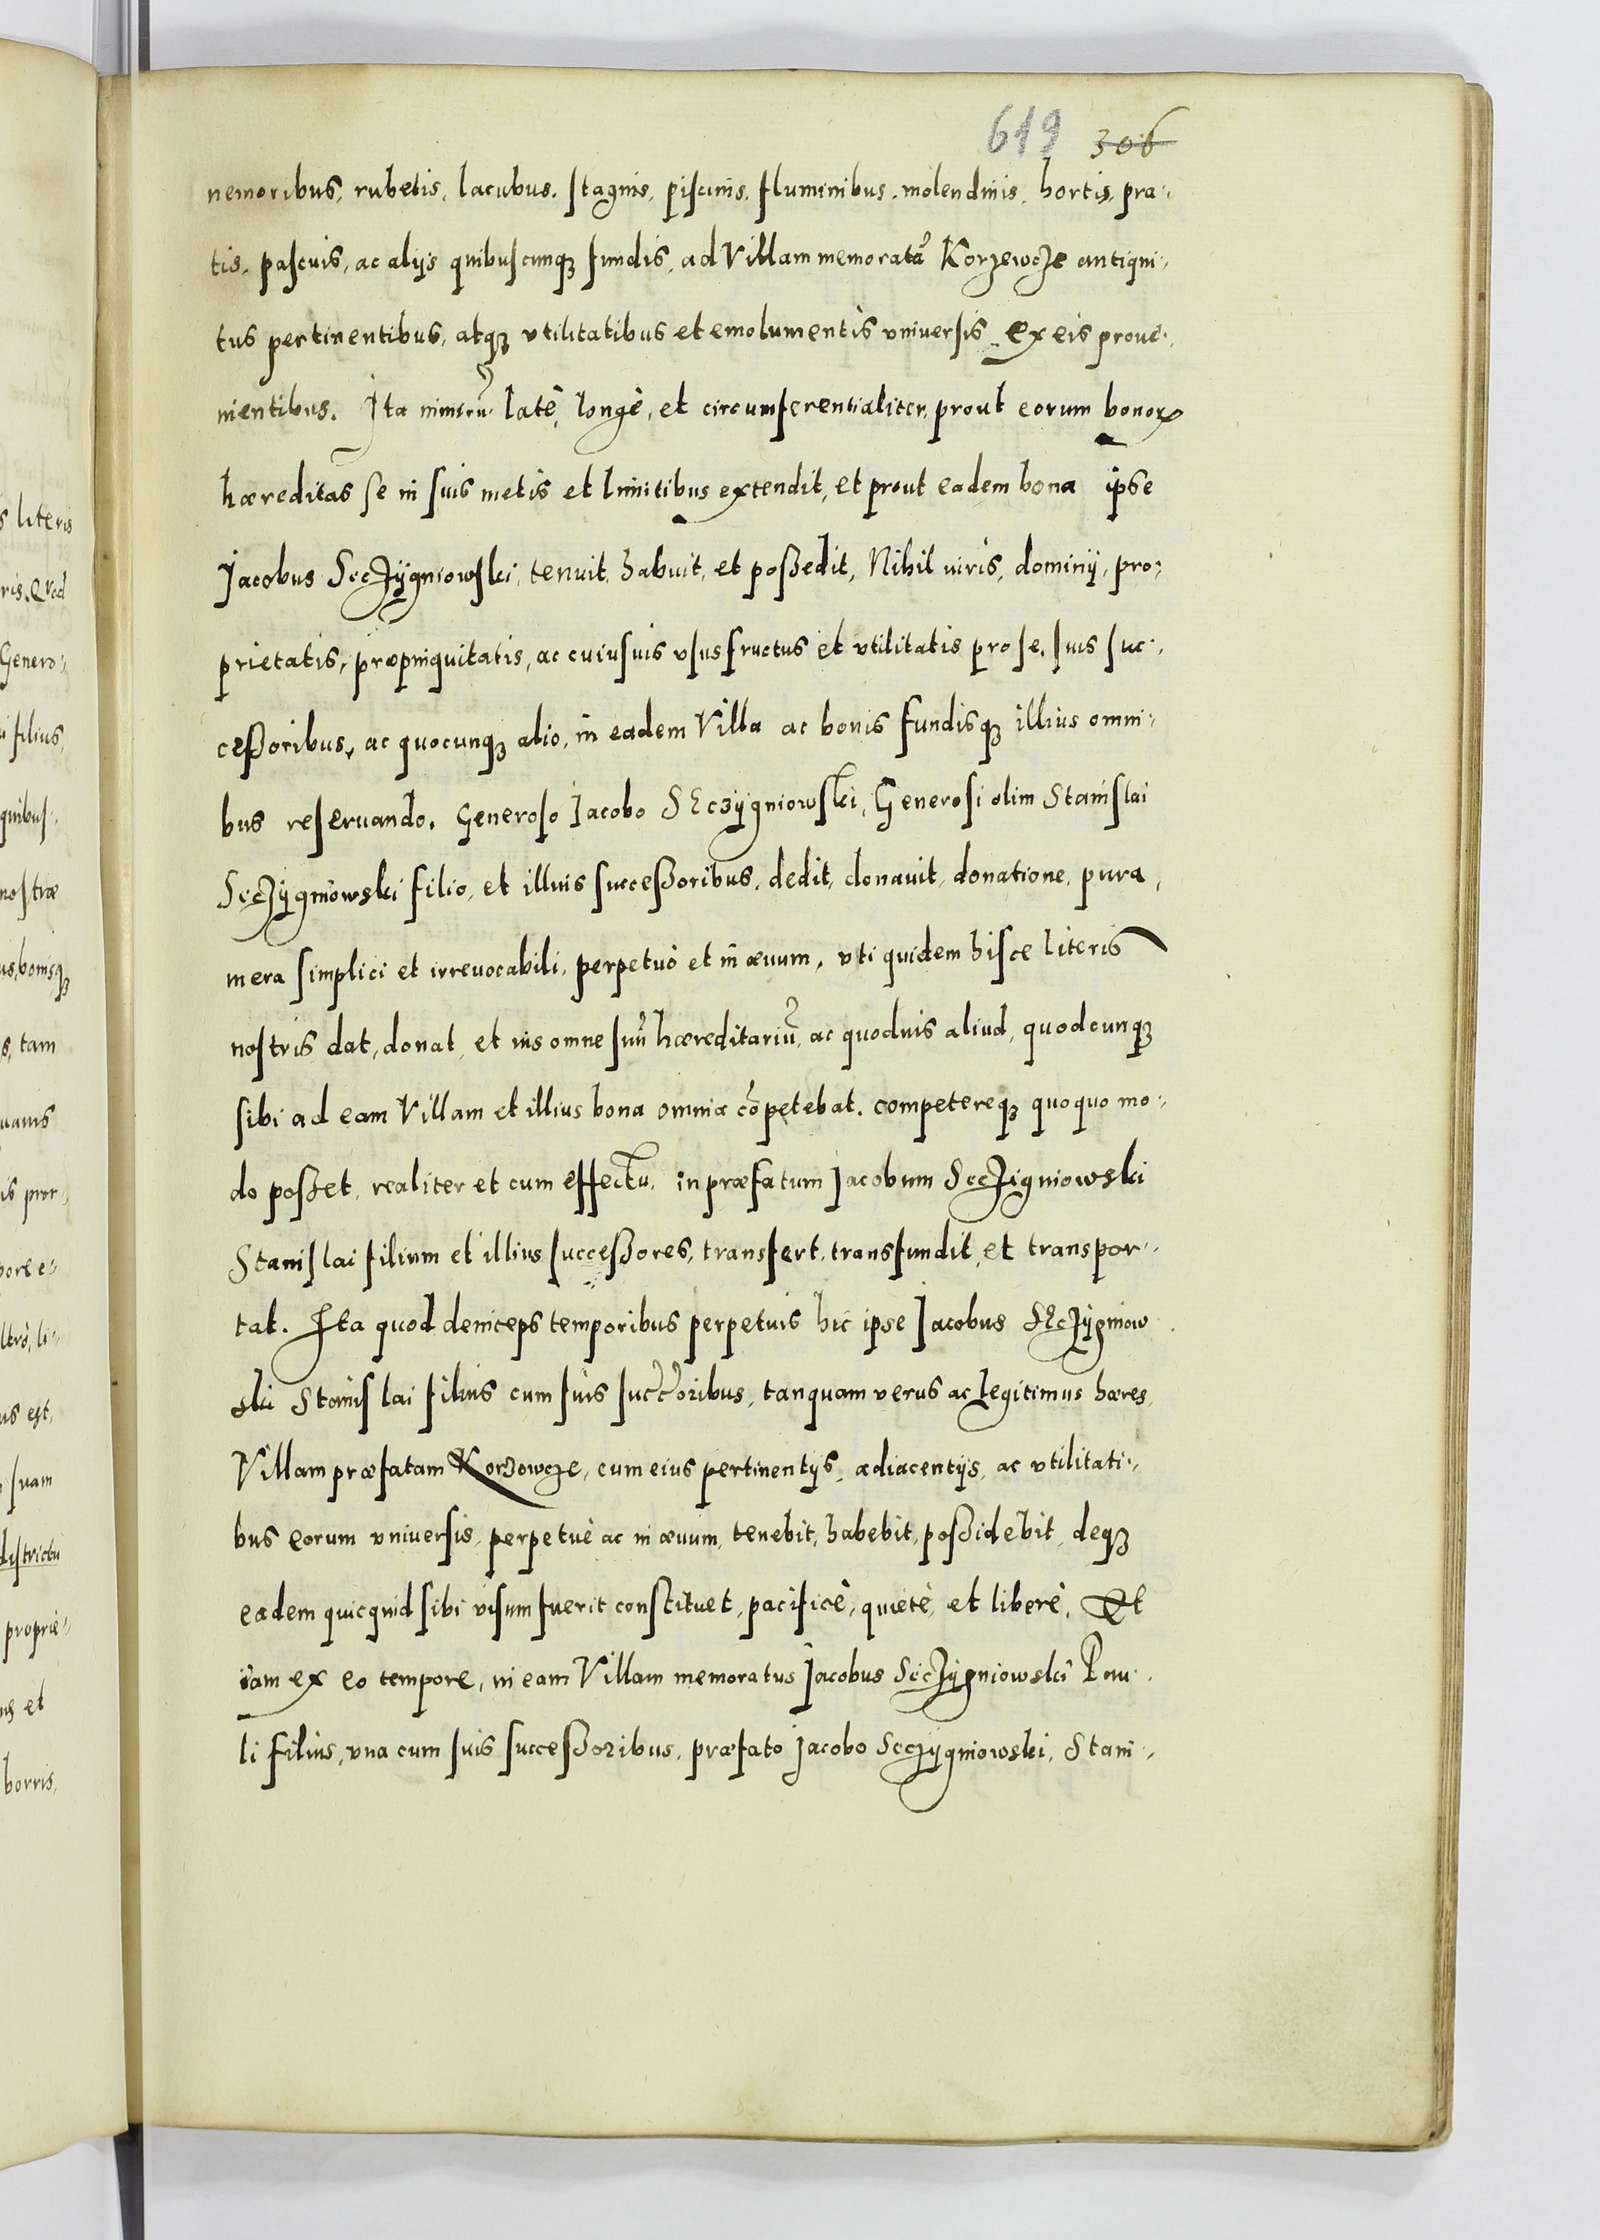 619 306
nemoribus, rubetis, lacubus, stagnis, piscinis, fluminibus, molendinis, hortis, pra-
tis, pascuis, ac alijs quibuscunqꝫ fundis, ad Villam memoratã Korzewcze antiqui-
tus pertinentibus, atqꝫ vtilitatibus et emolumentis vniuersis ex eis proue-
nientibus. Ita nimirũ latè, longè, et circumferentialiter, prout eorum bonoꝝ
hæreditas se in suis metis et limitibus extendit, et prout eadem bona ipse
Jacobus Seczÿgniowski, tenuit, habuit, et possedit, Nihil iuris, dominij, pro-
prietatis, propinquitatis, ac cuiusuis vsusfructus et vtilitatis pro se, suis suc-
cessoribus, ac quocunqꝫ alio, in eadem Villa ac bonis fundisqꝫ illius omni-
bus reseruando. Generoso Jacobo Seczÿgniowski, Generosi olim Stanislai
Seczÿgniowski filio, et illius successoribus, dedit, donauit, donatione, pura,
mera simplici et irreuocabili, perpetuò et in æuum, vti quidem hisce literis
nostris dat, donat, et ius omne suũ hæreditariũ, ac quoduis aliud, quodcunqꝫ
sibi ad eam Villam et illius bona omnia cõpetebat, competereqꝫ quoquo mo-
do posset, realiter et cum effectu, in præfatum Jacobum Seczigniowski
Stanislai filium et illius successores, transfert, transfundit, et transpor-
tat. Ita quod deinceps temporibus perpetuis hic ipse Jacobus Seczÿgniow
ski Stanislai filius cum suis succ̃oribus, tanquam verus ac legitimus hæres,
Villam præfatam Korzowcze, cum eius pertinentijs, adiacentijs, ac vtilitati-
bus eorum vniuersis, perpetuè ac in æuum, tenebit, habebit, possidebit, deqꝫ
eadem quicquid sibi visum fuerit constituet, pacificè, quietè, et liberè. Et
iam ex eo tempore, in eam Villam memoratus Jacobus Seczÿgniowski Pau-
li filius, vna cum suis successoribus, præfato Jacobo Seczÿgniowski, Stani-